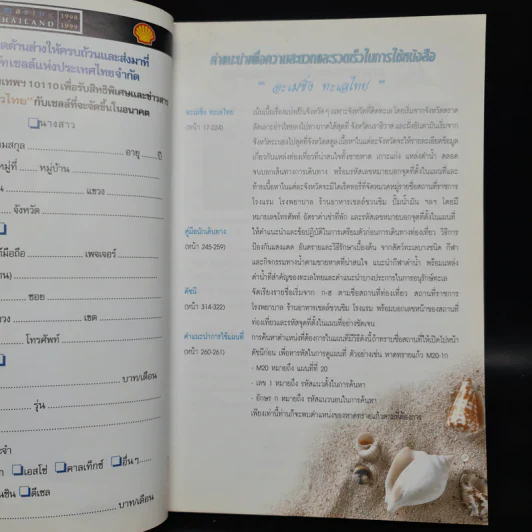 THAILAND 1998 1999
ดด้านล่างให้ครบถ้วนและส่งมาที่
ัทเชลล์แห่งประเทศไทยจำกัด
เทพฯ 10110 เพื่อรับสิทธิพิเศษและข่าวสาร
ไทย" กับเชลล์ที่จะจัดขึ้นในอนาคต
นางสาว
มสกุล อายุ ปี
หมู่ที่ หมู่บ้าน
แขวง
จังหวัด
มือถือ เพจเจอร์
ซอย
เขต
โทรศัพท์
บาท/เดือน
รุ่น
ะจำ
เอสโซ่ คาลเท็กซ์ อื่นๆ
ดีเซล
บาท/เดือน
คำแนะนำเพื่อความสะดวกและรวดเร็วในการใช้หนังสือ
" อะเมซิ่ง ทะเลไทย "
อะเมซิ่ง ทะเลไทย
(หน้า 17-224)
เน้นเนื้อเรื่องแบ่งเป็นจังหวัดๆ เฉพาะจังหวัดที่ติดทะเล โดยเริ่มจากจังหวัดตราด
ท้ายเนื้อหาในแต่ละจังหวัดจะมีไดเร็คทอรี่ที่จัดหมวดหมู่รายชื่อสถานที่ราชการ
โรงแรม โรงพยาบาล ร้านอาหารเชลล์ชวนชิม ปั๊มน้ำมัน ฯลฯ โดยมี
หมายเลขโทรศัพท์ อัตราค่าเช่าที่พัก และรหัสเลขหมายบอกจุดที่ตั้งในแผนที่
คู่มือนักเดินทาง
(หน้า 245-259)
ให้คำแนะนำและข้อปฏิบัติในการเตรียมตัวก่อนการเดินทางท่องเที่ยว วิธีการ
ป้องกันแสงแดด อันตรายและวิธีรักษาเบื้องต้น จากสัตว์ทะเลบางชนิด กีฬา
และกิจกรรมทางน้ำตามชายหาดที่น่าสนใจ แนะนำกีฬาดำน้ำ พร้อมแหล่ง
ดำน้ำที่สำคัญของทะเลไทยและคำแนะนำบางประการในการอนุรักษ์ทะเล
ดัชนี
(หน้า 314-322)
จัดเรียงรายชื่อเริ่มจาก ก-ฮ ตามชื่อสถานที่ท่องเที่ยว สถานที่ราชการ
โรงพยาบาล ร้านอาหารเชลล์ชวนชิม โรงแรม พร้อมบอกเลขหน้าของสถานที่
ท่องเที่ยวและรหัสจุดที่ตั้งในแผนที่อย่างชัดเจน
คำแนะนำการใช้แผนที่
(หน้า 260-261)
การค้นหาตำแหน่งที่ต้องการในแผนที่มีวิธีดังนี้ ถ้าทราบชื่อสถานที่ให้เปิดไปหน้า
ดัชนีก่อน เพื่อหารหัสในการดูแผนที่ ตัวอย่างเช่น หาดทรายแก้ว M20-1ก
- M20 หมายถึง แผนที่ที่ 20
- เลข 1 หมายถึง รหัสแนวตั้งในการค้นหา
- อักษร ก หมายถึง รหัสแนวนอนในการค้นหา
เพียงเท่านี้ท่านก็จะพบตำแหน่งของหาดทรายแก้วตามที่ต้องการ